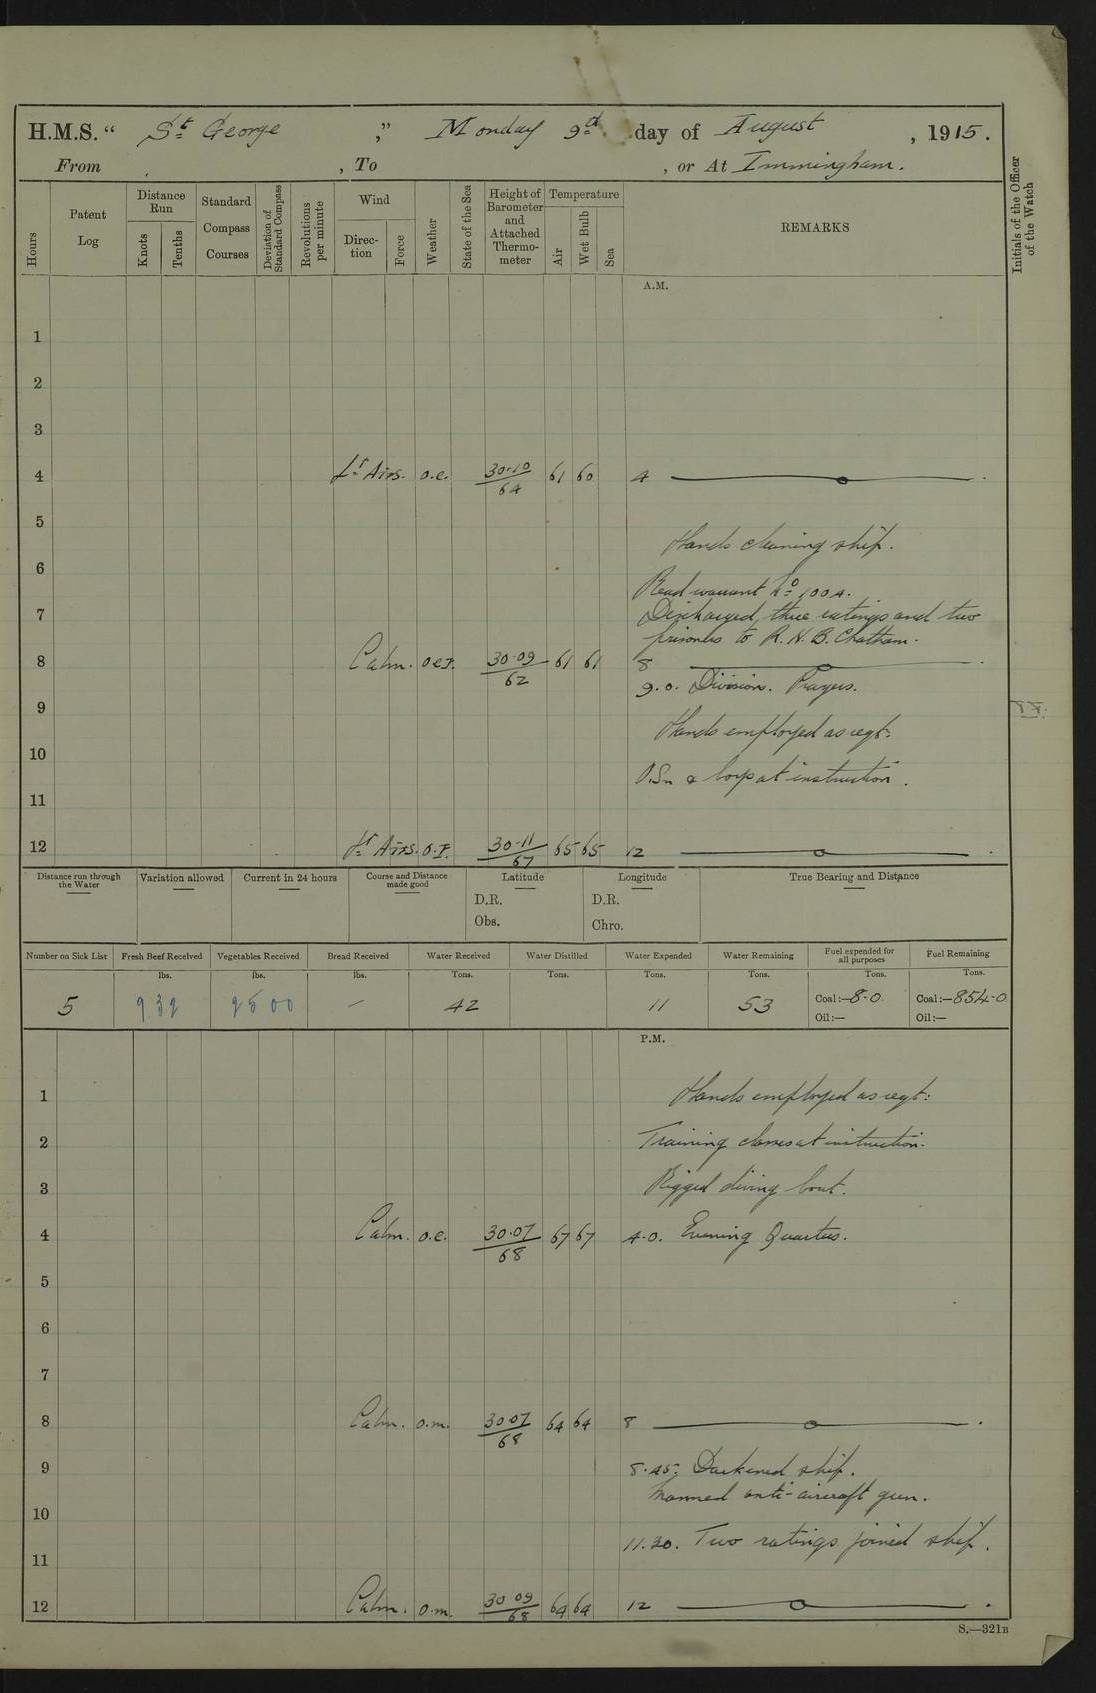 H.M.S. "St George," Monday 9th day of August, 1915.
From , To , or At Immingham.
Hours
Patent Log
Distance Run
Knots
Tenths
Standard Compass Courses
Deviation of Standard Compass
Revolutions per minute
Wind
Direction
Force
Weather
State of the Sea
Height of Barometer and Attached Thermometer
Temperature
Air
Wet Bulb
Sea
REMARKS
Initials of the Officer of the Watch
A.M.
1
2
3
4 Lt Airs. o.c. 30.10/64 61 60 4
5
Hands cleaning ship.
6
Read warrant No 100A.
7 Discharged three ratings and two
prisoners to R.N.B. Chatham.
8 Calm. o.c.F. 30.09/62 61 61 8
9.0. Division. Prayers.
9
Hands employed as reqt:
10
O.Sn & boys at instruction.
11
12 Lt Airs. o.F. 30.11/67 65 65 12
Distance run through the Water
Variation allowed
Current in 24 hours
Course and Distance made good
Latitude
D.R.
Obs.
Longitude
D.R.
Chro.
True Bearing and Distance
Number on Sick List
Fresh Beef Received
Vegetables Received
Bread Received
Water Received
Water Distilled
Water Expended
Water Remaining
Fuel expended for all purposes
Fuel Remaining
lbs. lbs. lbs. Tons. Tons. Tons. Tons. Tons. Tons.
5 932 2500 — 42 11 53 Coal:—8.0 Coal:—854.0
Oil:— Oil:—
P.M.
1 Hands employed as reqt:
2 Training classes at instruction.
3 Rigged diving boat.
4 Calm. o.c. 30.07/68 67 67 4.0. Evening Quarters.
5
6
7
8 Calm. o.m. 30 07/68 64 64 8
9 8.45. Darkened ship.
Manned anti-aircraft gun.
10
11.30. Two ratings joined ship.
11
12 Calm. o.m. 30 09/68 64 64 12
S.—321B